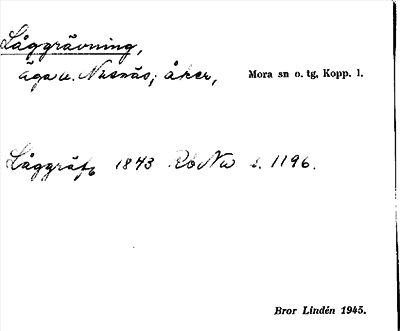 Låggrävning,
äga u. Nusnäs; åker, Mora sn o. tg, Kopp. l.
Låggräfv 1843 Rb Nu s. 1196.
Bror Lindén 1945.